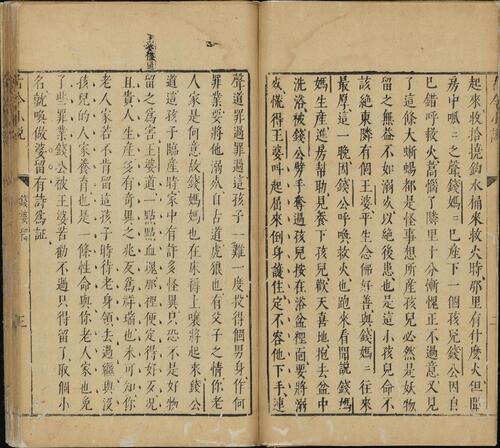 起來收拾撓鈎水桶來救火時那里有什麽火但聞
房中呱〻之聲錢媽〻已產下一個孩兒錢公因自
已錯呼救火蒿惱了隣里十分慚愧正不過意又見
了這條大蜥蜴都是怪事想所產孩兒必然是妖物
留之無益不如溺死以絕後患也是這小孩兒命不
該絕東隣有個王婆平生念佛好善與錢媽〻往來
最厚這一晚因錢公呼喚救火也跑來看聞說錢媽
媽生產進房幫助見養下孩兒歡天喜地抱去盆中
洗浴被錢公劈手奪過孩兒按在浴盆裡面要將溺
死慌得王婆叫起屈來倒身護住定不容他下手連
聲道罪過罪過這孩子一難一度投得個男身作何
罪業要將他溺死自古道虎狼也有父子之情你老
人家是何意故錢媽媽也在床褥上嚷將起來錢公
道這孩子臨產時家中有許多怪異只恐不是好物
留之為害王婆道一點點血塊那裡便定得好歹况
且貴人生產多有奇異之兆反為祥瑞也未可知你
老人家若不肯留這孩子時待老身領去過繼與沒
孩兒的人家養育也是一條性命與你老人家也免
了些罪業錢公被王婆苦勸不過只得留了取個小
名就喚做婆留有詩為証
古今小說